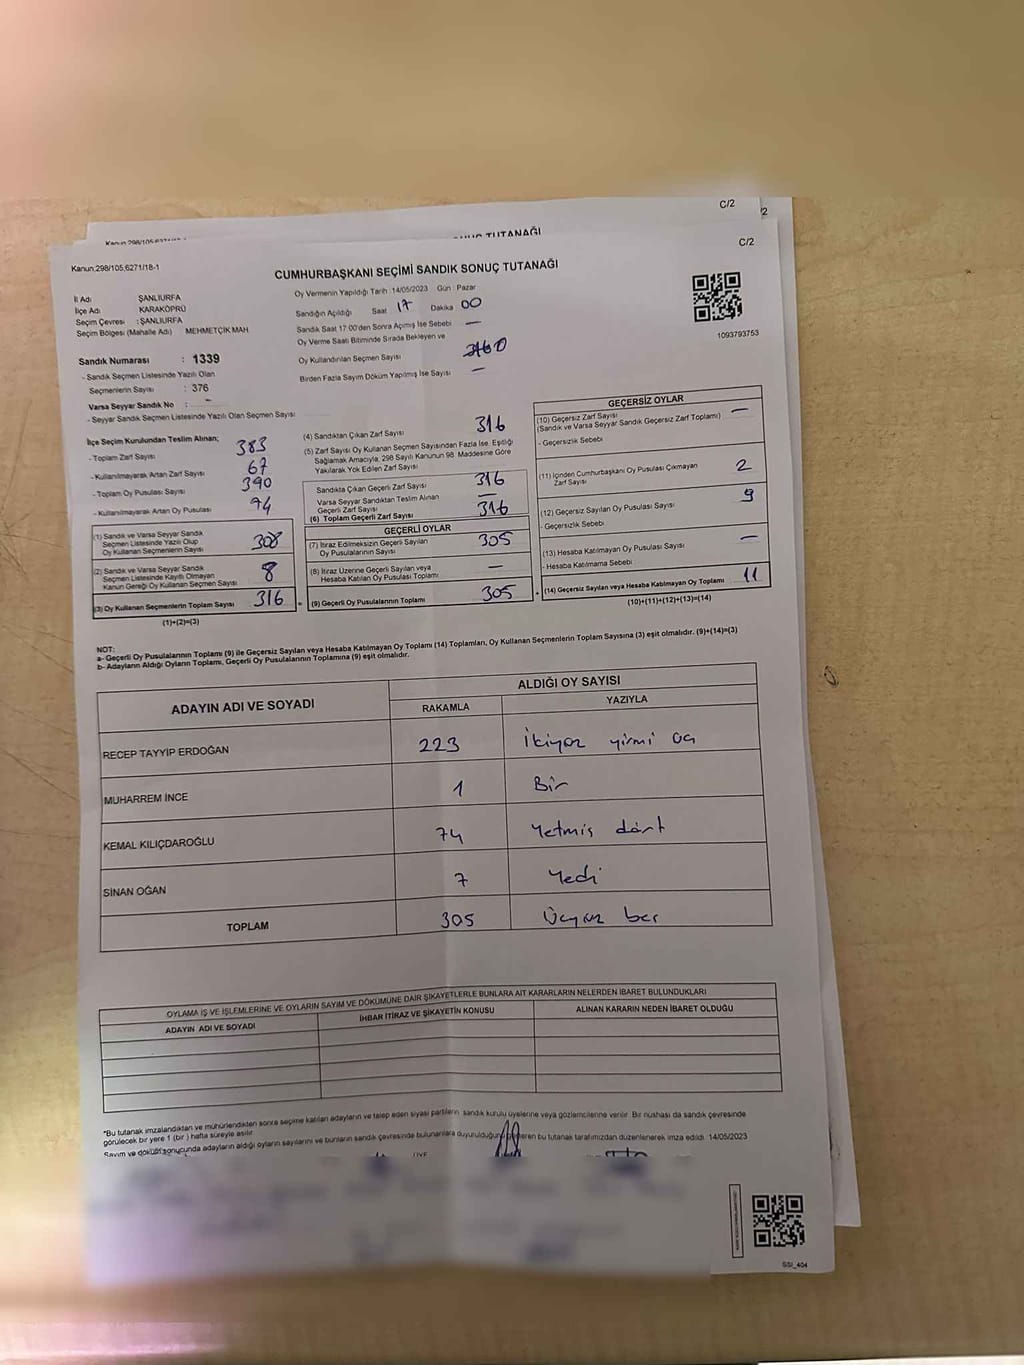 C/2
/2
Kanun,298/105,6271/18-1
C/2
CUMHURBAŞKANI SEÇİMİ SANDIK SONUÇ TUTANAĞI
İl Adı ŞANLIURFA
İlçe Adı KARAKÖPRÜ
Seçim Çevresi : ŞANLIURFA
Seçim Bölgesi (Mahalle Adı) MEHMETÇİK MAH
Oy Vermenin Yapıldığı Tarih :14/05/2023 Gün : Pazar
Sandığın Açıldığı Saat 17 Dakika 00
Sandık Saat 17:00'den Sonra Açımış İse Sebebi —
Oy Verme Saati Bitiminde Sırada Bekleyen ve
Oy Kullandırılan Seçmen Sayısı
Birden Fazla Sayım Döküm Yapılmış İse Sayısı —
1093793753
Sandık Numarası : 1339
- Sandık Seçmen Listesinde Yazılı Olan
Seçmenlerin Sayısı : 376
Varsa Seyyar Sandık No : -
- Seyyar Sandık Seçmen Listesinde Yazılı Olan Seçmen Sayısı
İlçe Seçim Kurulundan Teslim Alınan;
- Toplam Zarf Sayısı 383
- Kullanılmayarak Artan Zarf Sayısı 67
- Toplam Oy Pusulası Sayısı 390
- Kullanılmayarak Artan Oy Pusulası 74
(1) Sandık ve Varsa Seyyar Sandık
Seçmen Listesinde Yazılı Olup
Oy Kullanan Seçmenlerin Sayısı 308
(2) Sandık ve Varsa Seyyar Sandık
Seçmen Listesinde Kayıtlı Olmayan
Kanun Gereği Oy Kullanan Seçmen Sayısı 8
(3) Oy Kullanan Seçmenlerin Toplam Sayısı 316
(1)+(2)=(3)
(4) Sandıktan Çıkan Zarf Sayısı 316
(5) Zarf Sayısı Oy Kullanan Seçmen Sayısından Fazla İse, Eşitliği
Sağlamak Amacıyla, 298 Sayılı Kanunun 98. Maddesine Göre
Yakılarak Yok Edilen Zarf Sayısı
Sandıkta Çıkan Geçerli Zarf Sayısı 316
Varsa Seyyar Sandıktan Teslim Alınan
Geçerli Zarf Sayısı —
(6) Toplam Geçerli Zarf Sayısı 316
GEÇERLİ OYLAR
(7) İtiraz Edilmeksizin Geçerli Sayılan
Oy Pusulalarının Sayısı 305
(8) İtiraz Üzerine Geçerli Sayılan veya
Hesaba Katılan Oy Pusulası Toplamı —
= (9) Geçerli Oy Pusulalarının Toplamı 305
GEÇERSİZ OYLAR
(10) Geçersiz Zarf Sayısı
(Sandık ve Varsa Seyyar Sandık Geçersiz Zarf Toplamı) —
- Geçersizlik Sebebi
(11) İçinden Cumhurbaşkanı Oy Pusulası Çıkmayan
Zarf Sayısı 2
(12) Geçersiz Sayılan Oy Pusulası Sayısı 9
- Geçersizlik Sebebi
(13) Hesaba Katılmayan Oy Pusulası Sayısı —
- Hesaba Katılmama Sebebi
+ (14) Geçersiz Sayılan veya Hesaba Katılmayan Oy Toplamı 11
(10)+(11)+(12)+(13)=(14)
NOT:
a- Geçerli Oy Pusulalarının Toplamı (9) ile Geçersiz Sayılan veya Hesaba Katılmayan Oy Toplamı (14) Toplamları, Oy Kullanan Seçmenlerin Toplam Sayısına (3) eşit olmalıdır. (9)+(14)=(3)
b- Adayların Aldığı Oyların Toplamı, Geçerli Oy Pusulalarının Toplamına (9) eşit olmalıdır.
ADAYIN ADI VE SOYADI
ALDIĞI OY SAYISI
RAKAMLA YAZIYLA
RECEP TAYYİP ERDOĞAN 223 İkiyüz yirmi üç
MUHARREM İNCE 1 Bir
KEMAL KILIÇDAROĞLU 74 Yetmiş dört
SİNAN OĞAN 7 Yedi
TOPLAM 305 Üçyüz beş
OYLAMA İŞ VE İŞLEMLERİNE VE OYLARIN SAYIM VE DÖKÜMÜNE DAİR ŞİKAYETLERLE BUNLARA AİT KARARLARIN NELERDEN İBARET BULUNDUKLARI
ADAYIN ADI VE SOYADI İHBAR İTİRAZ VE ŞİKAYETİN KONUSU ALINAN KARARIN NEDEN İBARET OLDUĞU
*Bu tutanak imzalandıktan ve mühürlendikten sonra seçime katılan adayların ve talep eden siyasi partilerin sandık kurulu üyelerine veya gözlemcilerine verilir. Bir nushası da sandık çevresinde
görülecek bir yere 1 (bir) hafta süreyle asılır.
Sayım ve döküm sonucunda adayların aldığı oyların sayılarını ve bunların sandık çevresinde bulunanlara duyurulduğunu bu tutanak tarafımızdan düzenlenerek imza edildi. 14/05/2023
SSI_404